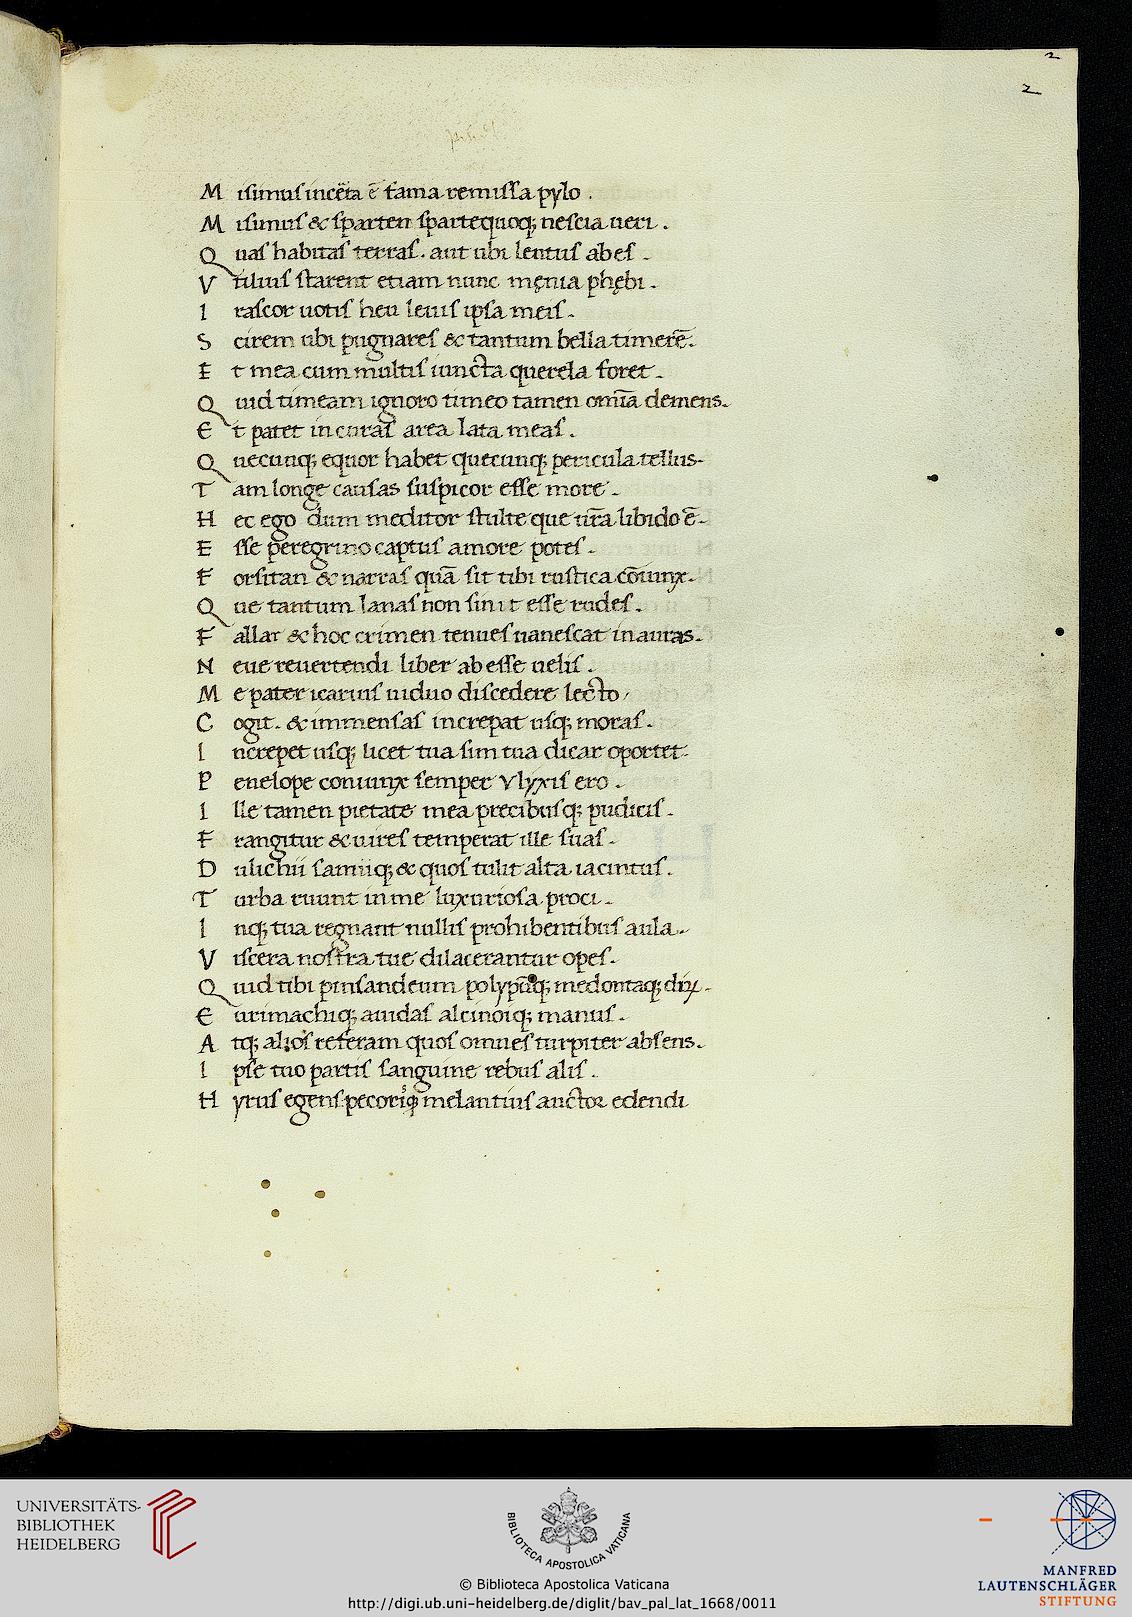 2
2
M isimus incẽta ẽ fama remissa pylo .
M isimus & sparten sparte quoq; nescia ueri .
Q uas habitas terras . aut ubi lentus abes .
V tilius starent etiam nunc męnia phębi .
I rascor uotis heu leuis ipsa meis .
S cirem ubi pugnares & tantum bella timerẽ .
E t mea cum multis iuncta querela foret .
Q uid timeam ignoro timeo tamen omĩa demens .
E t patet in curas area lata meas .
Q uecunq; equor habet quecunq; pericula tellus .
T am longe causas suspicor esse more .
H ec ego dum meditor stulte que ur̃a libido ẽ .
E sse peregrino captus amore potes .
F orsitan & narras quã sit tibi rustica cõiunx .
Q ue tantum lanas non sinit esse rudes .
F allar & hoc crimen tenues uanescat in auras .
N eue reuertendi liber abesse uelis .
M e pater icarius uiduo discedere lecto .
C ogit . & immensas increpat usq; moras .
I ncrepet usq; licet tua sim tua dicar oportet .
P enelope coniunx semper Vlyxis ero .
I lle tamen pietate mea precibusq; pudicis .
F rangitur & uires temperat ille suas .
D ulichii samiiq; & quos tulit alta iacintus .
T urba ruunt in me luxuriosa proci .
I nq; tua regnant nullis prohibentibus aula .
V iscera nostra tue dilacerantur opes .
Q uid tibi pinsandeum polypũq; medontaq; dirũ .
E urimachiq; auidas alcinoiq; manus .
A tq; alios referam quos omnes turpiter absens .
I pse tuo partis sanguine rebus alis .
H yrus egens pecorisq; melantius auctor edendi
UNIVERSITÄTS-
BIBLIOTHEK
HEIDELBERG
BIBLIOTECA APOSTOLICA VATICANA
© Biblioteca Apostolica Vaticana
http://digi.ub.uni-heidelberg.de/diglit/bav_pal_lat_1668/0011
MANFRED
LAUTENSCHLÄGER
STIFTUNG